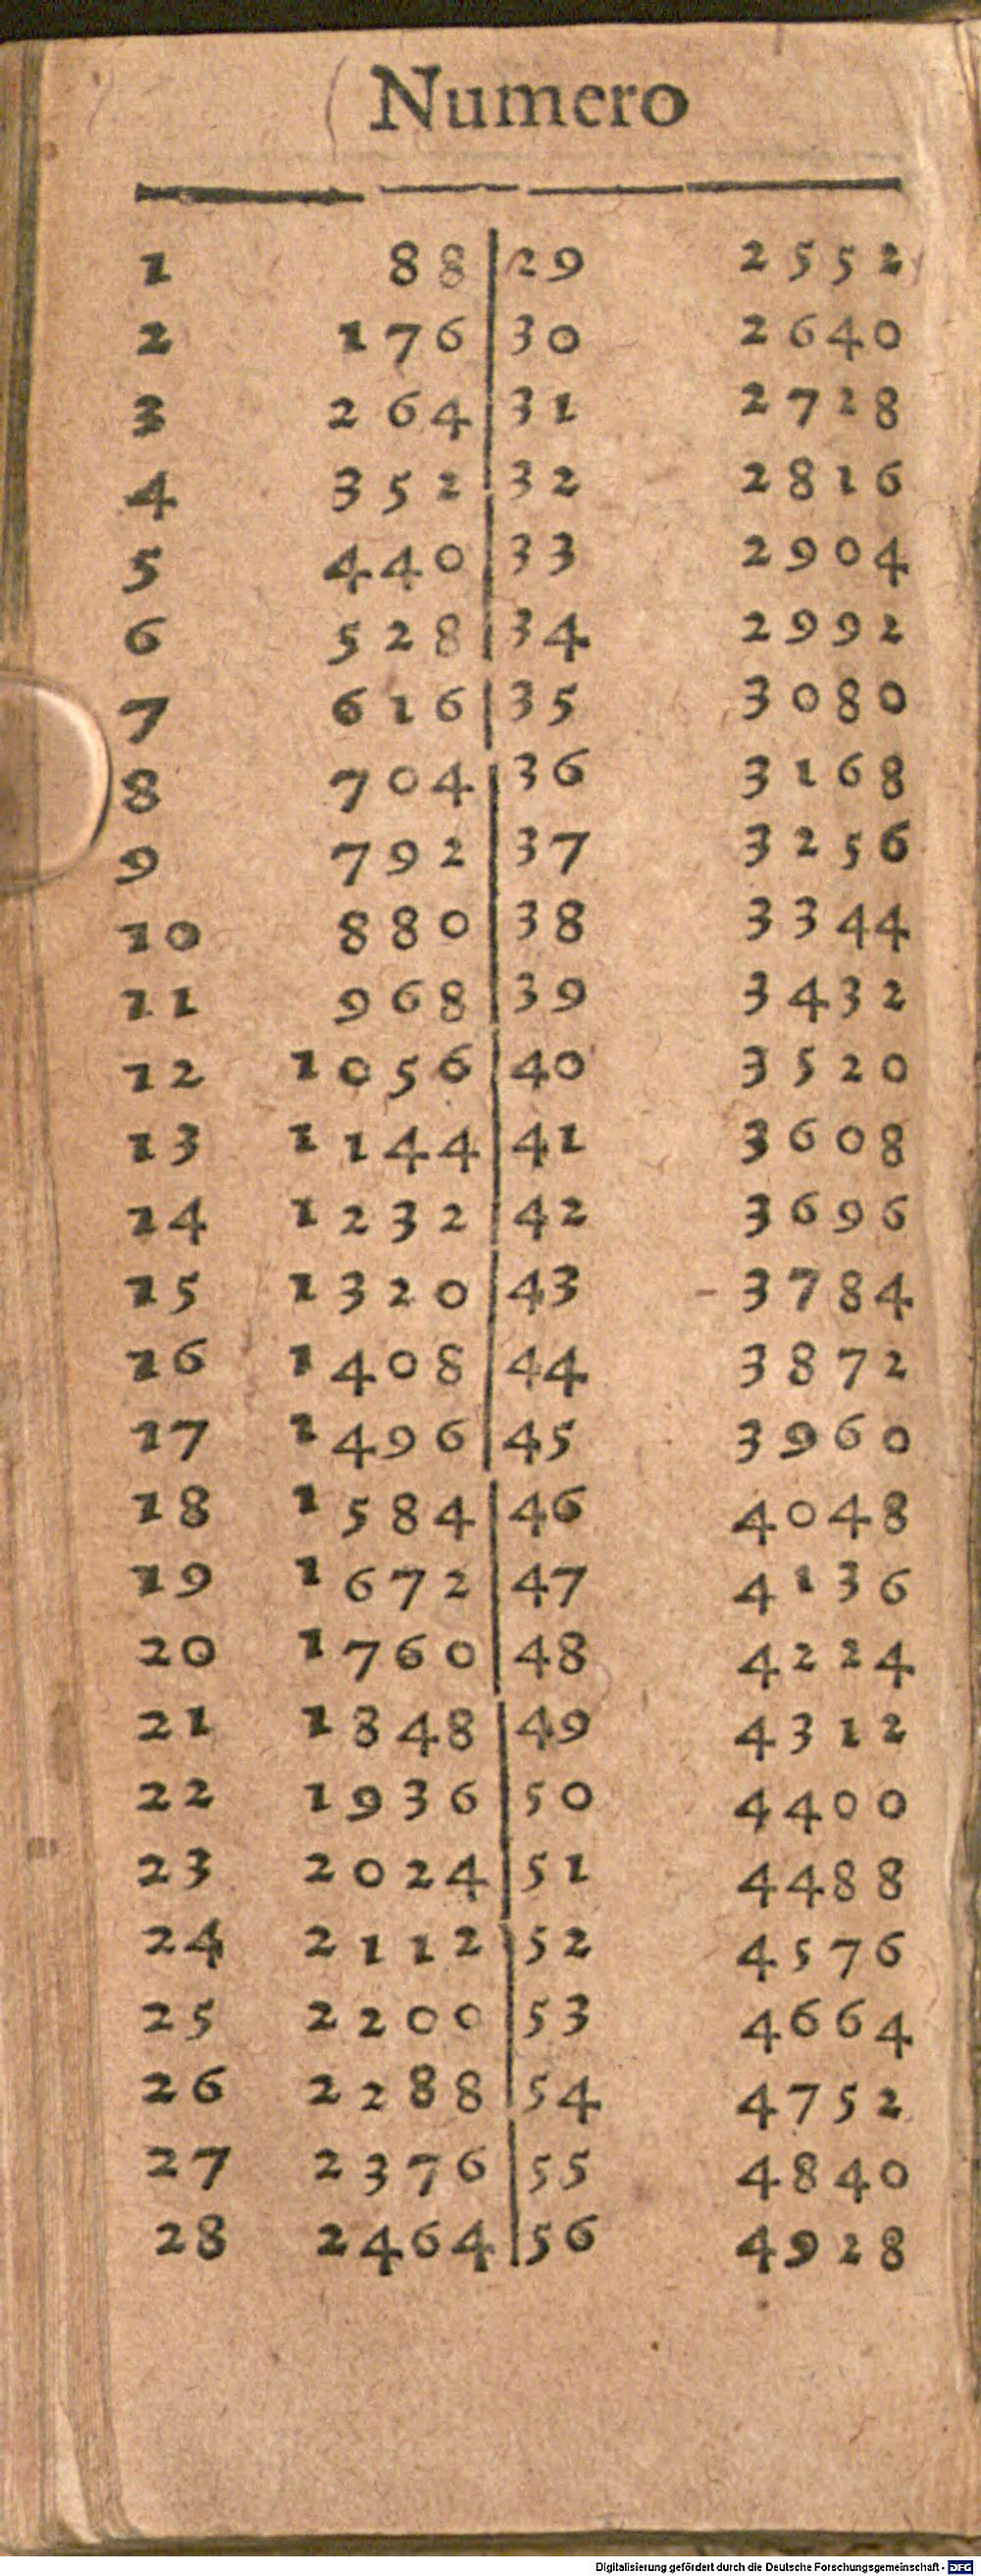 Numero
1 88 29 2552
2 176 30 2640
3 264 31 2728
4 352 32 2816
5 440 33 2904
6 528 34 2992
7 616 35 3080
8 704 36 3168
9 792 37 3256
10 880 38 3344
11 968 39 3432
12 1056 40 3520
13 1144 41 3608
14 1232 42 3696
15 1320 43 3784
16 1408 44 3872
17 1496 45 3960
18 1584 46 4048
19 1672 47 4136
20 1760 48 4224
21 1848 49 4312
22 1936 50 4400
23 2024 51 4488
24 2112 52 4576
25 2200 53 4664
26 2288 54 4752
27 2376 55 4840
28 2464 56 4928
Digitalisierung gefördert durch die Deutsche Forschungsgemeinschaft - DFG